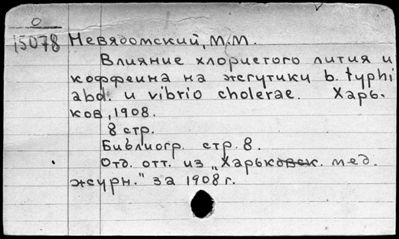 0
15078 Невядомский, М.М.
Влияние хлористого лития и
коффеина на жгутики b. typhi
abd. и vibrio cholerae. Харь-
ков, 1908.
8 стр.
Библиогр. стр. 8.
Отд. отт. из „Харьковск. мед.
журн." за 1908 г.